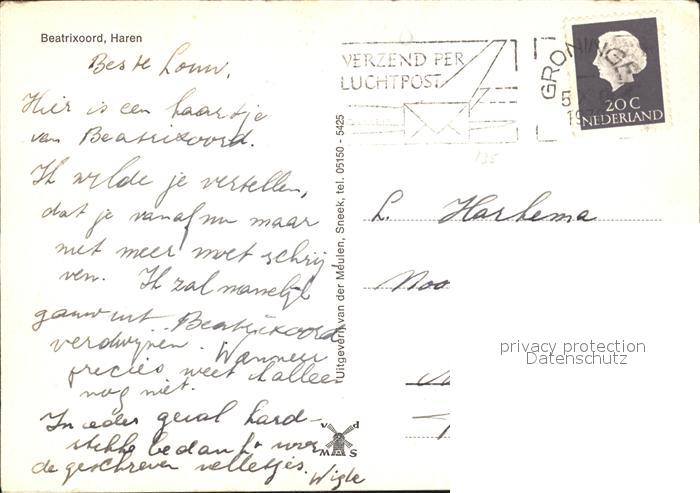 Beatrixoord, Haren
Beste Louw,
Hier is een kaartje
van Beatrixoord.
Ik wilde je vertellen,
dat je vanaf nu maar
niet meer moet schrij
ven. Ik zal namelijk
gauw uit Beatrixoord
verdwijnen. Wanneer
precies weet ik alleen
nog niet.
In ieder geval hard-
stikke bedankt voor
de geschreven velletjes.
Wigle
Uitgeverij van der Meulen, Sneek, tel. 05150 - 5425
v d
M S
VERZEND PER
LUCHTPOST
GRONINGE
5
20 C
NEDERLAND
135
L. Harkema
Noo
privacy protection
Datenschutz